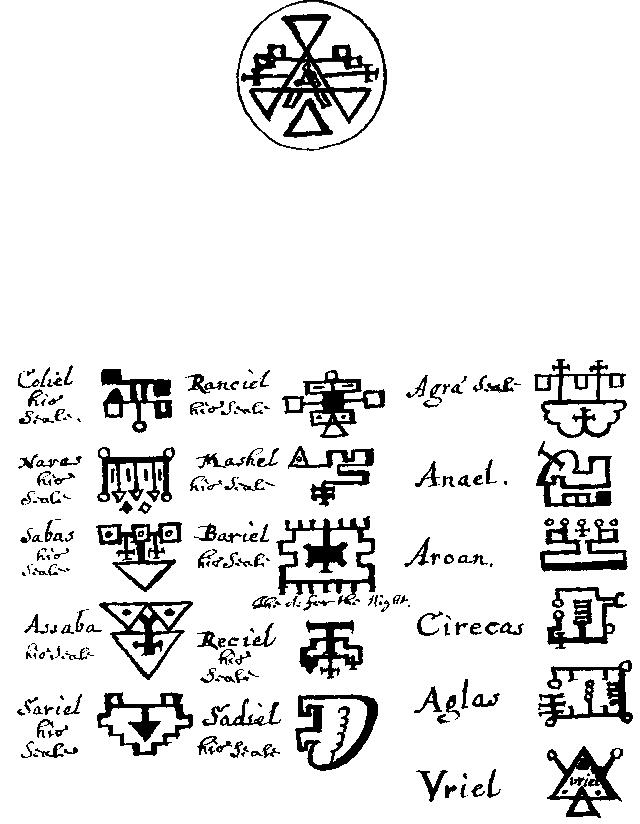 Coliel
his
Seale.
Naras
his
Seale
Sabas
his
Seale
Assaba
his Seale
Sariel
his
Seale
Ranciel
his Seale
Mashel
his Seale
Bariel
his Seale
for the Night.
Reciel
his
Seale
Sadiel
his Seale
Agra Seale
Anael.
Aroan.
Cirecas
Aglas
Vriel
Vriel